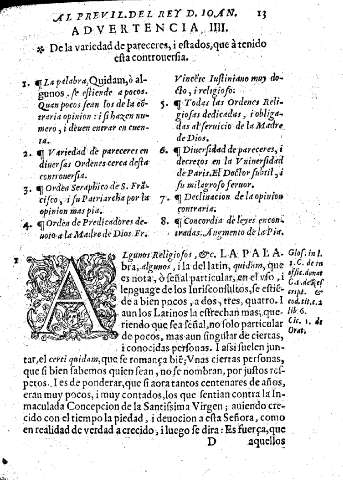 AL PREVIL. DEL REY D. IOAN. 13
ADVERTENCIA IIII.
* De la variedad de pareceres, i estados, que à tenido
esta controversia.
1. ¶ La palabra, Quidam, ò al-
gunos, se estiende a pocos.
Quan pocos sean los de la cõ-
traria opinion: i si hazen nu-
mero, i deven entrar en cuen-
ta.
2. ¶ Variedad de pareceres en
diversas Ordenes cerca desta
controversia.
3. ¶ Orden Seraphico de S. Frã-
cisco, i su Patriarcha por la
opinion mas pia.
4. ¶ Orden de Predicadores de-
voto a la Madre de Dios. Fr.
Vincẽte Iustiniano muy do-
cto, i religioso:
5. ¶ Todas las Ordenes Reli-
giosas dedicadas, i obliga-
das al servicio de la Madre
de Dios.
6. ¶ Diversidad de pareceres, i
decretos en la Vniversidad
de Paris. El Doctor subtil, i
su milagroso fervor.
7. ¶ Declinacion de la opinion
contraria.
8. ¶ Concordia de leyes encon-
tradas. Augmento de la Pia.
1 ALgunos Religiosos, &c. LA PALA-
bra, algunos, i la del latin, quidam, que
es nota, ò señal particular, en el uso, i
lenguage de los Iurisconsultos, se estiẽ-
de a bien pocos, a dos, tres, quatro. I
aun los Latinos la estrechan mas, que-
riendo que sea señal, no solo particular
de pocos, mas aun singular de ciertas,
i conocidas personas. I assi suelen jun-
tar, el certi quidam, que se romança biẽ; Vnas ciertas personas,
que si bien sabemos quien sean, no se nombran, por justos res-
petos. I es de ponderar, que si aora tantos centenares de años,
eran muy pocos, i muy contados, los que sentian contra la In-
maculada Concepcion de la Santissima Virgen; auiendo cre-
cido con el tiempo la piedad, i devocion a esta Señora, como
en realidad de verdad a crecido, i luego se dira: Es fuerça, que
D aquellos
Glos. in l.
1. C. de
lib 6.
Cic. 1. de
Orat.